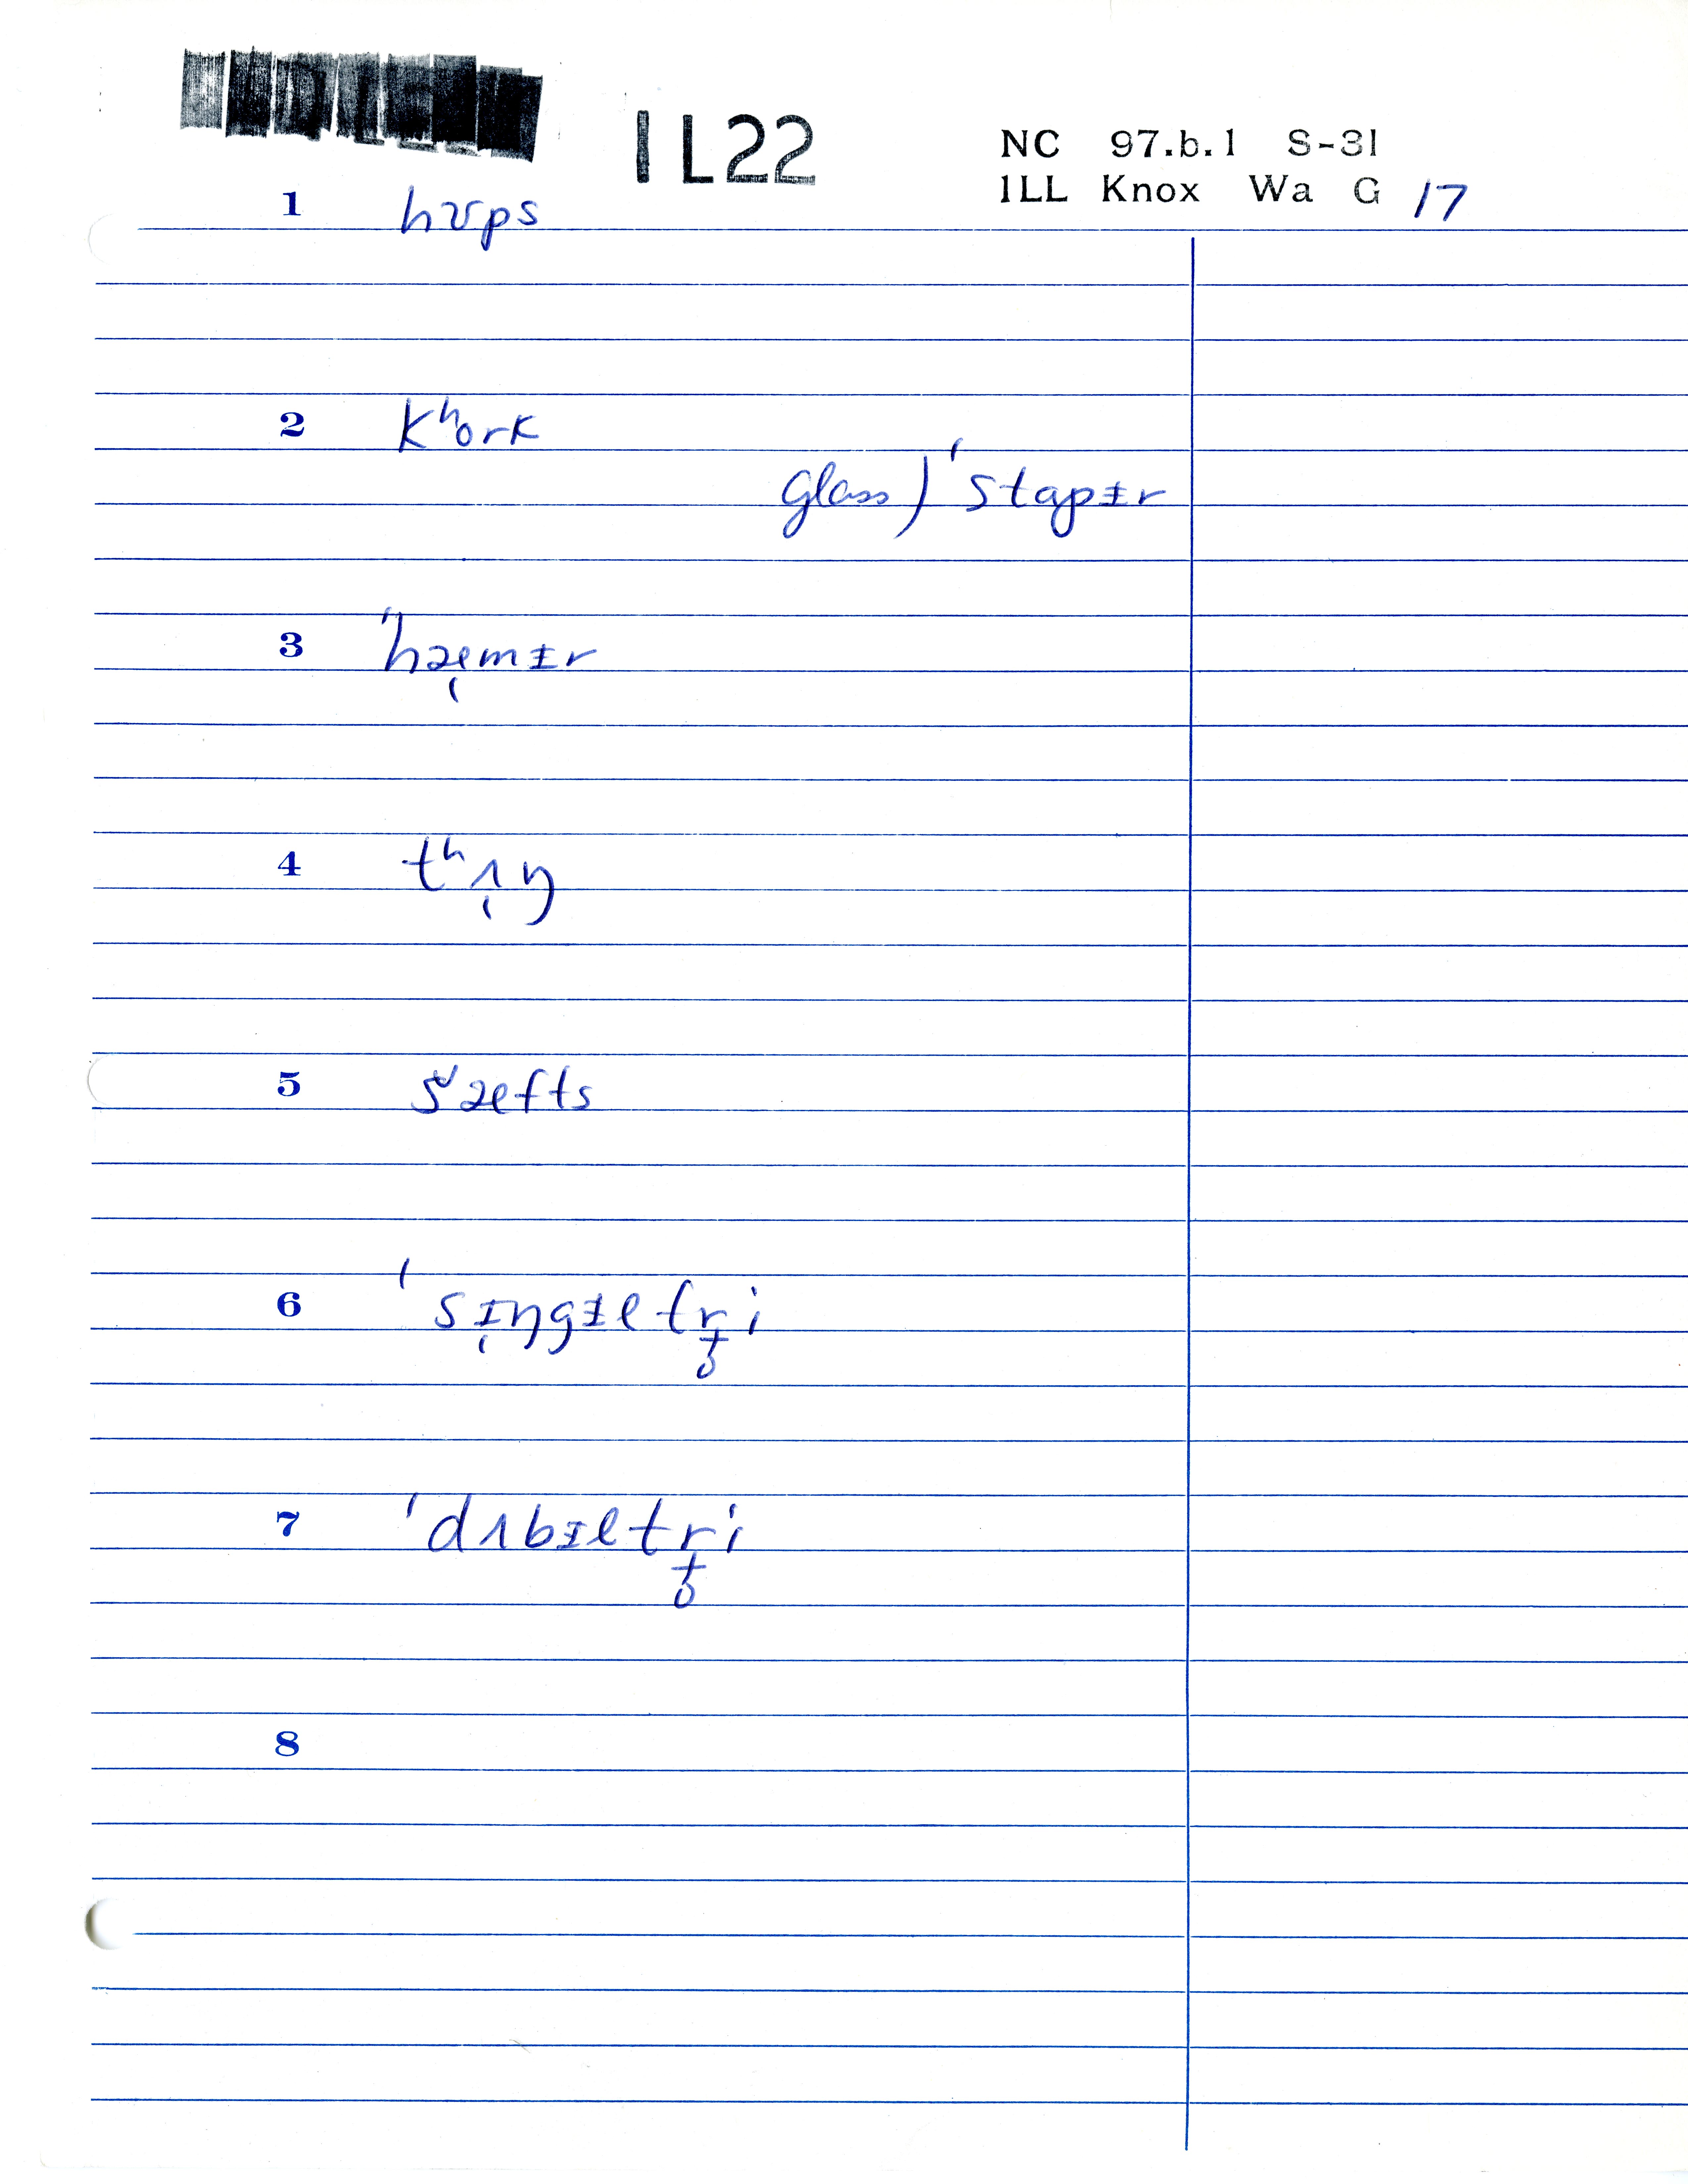 1L22
NC 97.b.1 S-31
1LL Knox Wa G 17
1 hʊps
2 kʰork
glass) ˈstapɨr
3 ˈhæ̜mɨr
4 tʰʌ̜ŋ
5 šæfts
6 ˈsɪ̜ŋgɨltr̥i
7 ˈdʌbɨltr̥i
8